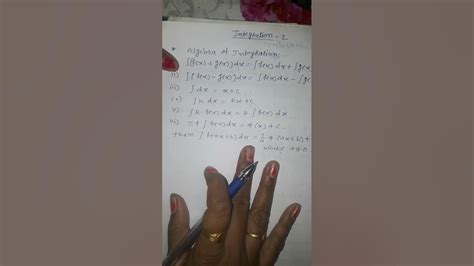 Integration - 2
* Algebra of Integration
∫[f(x)+g(x)]dx = ∫f(x)dx + ∫g(x)
ii) ∫[f(x)-g(x)]dx = ∫f(x)dx - ∫g(x)
iii) ∫dx = x+c.
iv) ∫k dx = kx+c.
v) ∫k f(x)dx = k ∫f(x)dx
vi) If ∫f(x)dx = φ(x)+c.
then ∫f(ax+b)dx = 1/a φ(ax+b)+
where a≠0